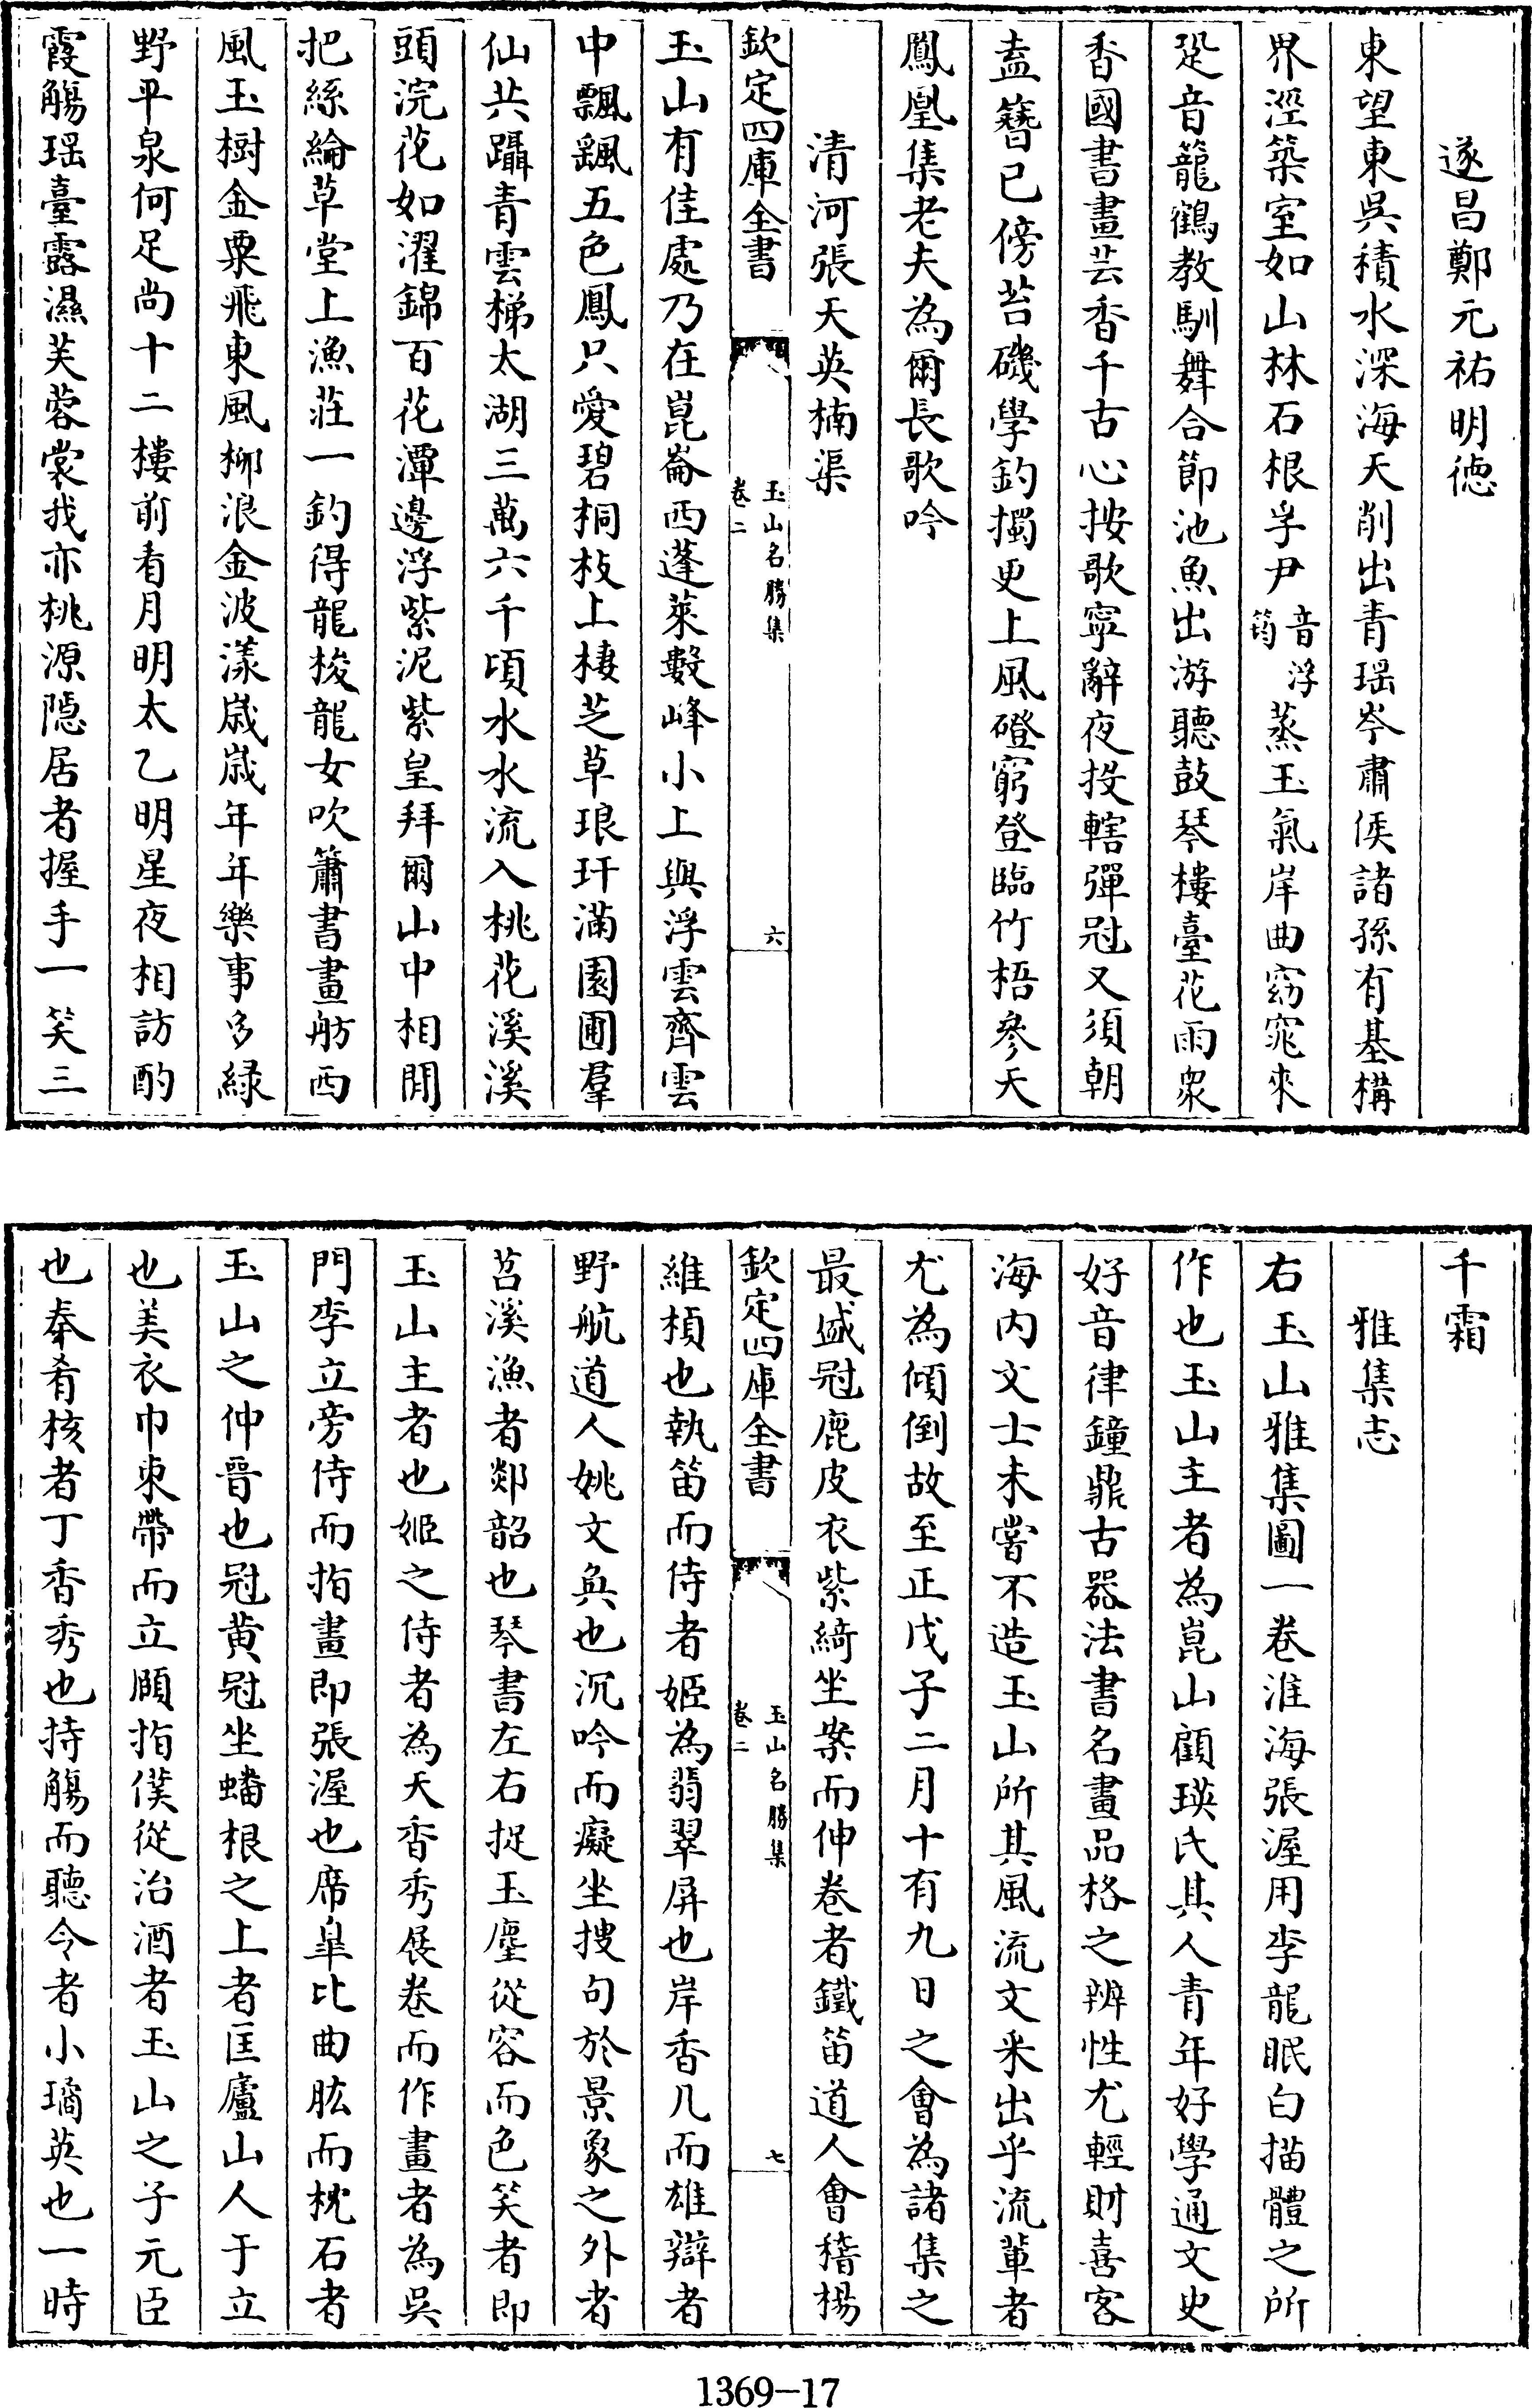 遂昌鄭元祐明徳
東望東吳積水深海天削出青瑶岑肅侯諸孫有基構
界涇築室如山林石根孚尹音浮筠蒸玉氣岸曲窈窕來
跫音籠鶴教馴舞合節池魚出游聽鼓琴樓臺花雨衆
香國書畫芸香千古心按歌寧辭夜投轄彈冠又須朝
盍簪已傍苔磯學釣擉更上風磴窮登臨竹梧參天
鳳凰集老夫為爾長歌吟
清河張天英楠渠
欽定四庫全書
玉山名勝集
卷二
六
玉山有佳處乃在崑崙西蓬萊數峰小上與浮雲齊雲
中飄飖五色鳳只愛碧桐枝上棲芝草琅玕滿園圃羣
仙共躡青雲梯太湖三萬六千頃水水流入桃花溪溪
頭浣花如濯錦百花潭邊浮紫泥紫皇拜爾山中相閒
把絲綸草堂上漁莊一釣得龍梭龍女吹簫書畫舫西
風玉樹金粟飛東風柳浪金波漾嵗嵗年年樂事多緑
野平泉何足尚十二樓前看月明太乙明星夜相訪酌
霞觴瑶臺露濕芙蓉裳我亦桃源隠居者握手一笑三
千霜
雅集志
右玉山雅集圖一卷淮海張渥用李龍眠白描體之所
作也玉山主者為崑山顧瑛氏其人青年好學通文史
好音律鐘鼎古器法書名畫品格之辨性尤輕財喜客
海内文士未嘗不造玉山所其風流文采出乎流輩者
尤為傾倒故至正戊子二月十有九日之會為諸集之
最盛冠鹿皮衣紫綺坐案而伸卷者鐵笛道人會稽楊
欽定四庫全書
玉山名勝集
卷二
七
維楨也執笛而侍者姬為翡翠屏也岸香几而雄辯者
野航道人姚文奐也沉吟而癡坐搜句於景象之外者
苕溪漁者郯韶也琴書左右捉玉麈從容而色笑者即
玉山主者也姬之侍者為天香秀展卷而作畫者為吳
門李立旁侍而指畫即張渥也席臯比曲肱而枕石者
玉山之仲晉也冠黄冠坐蟠根之上者匡廬山人于立
也美衣巾束帶而立頤指僕從治酒者玉山之子元臣
也奉肴核者丁香秀也持觴而聽令者小璚英也一時
1369-17